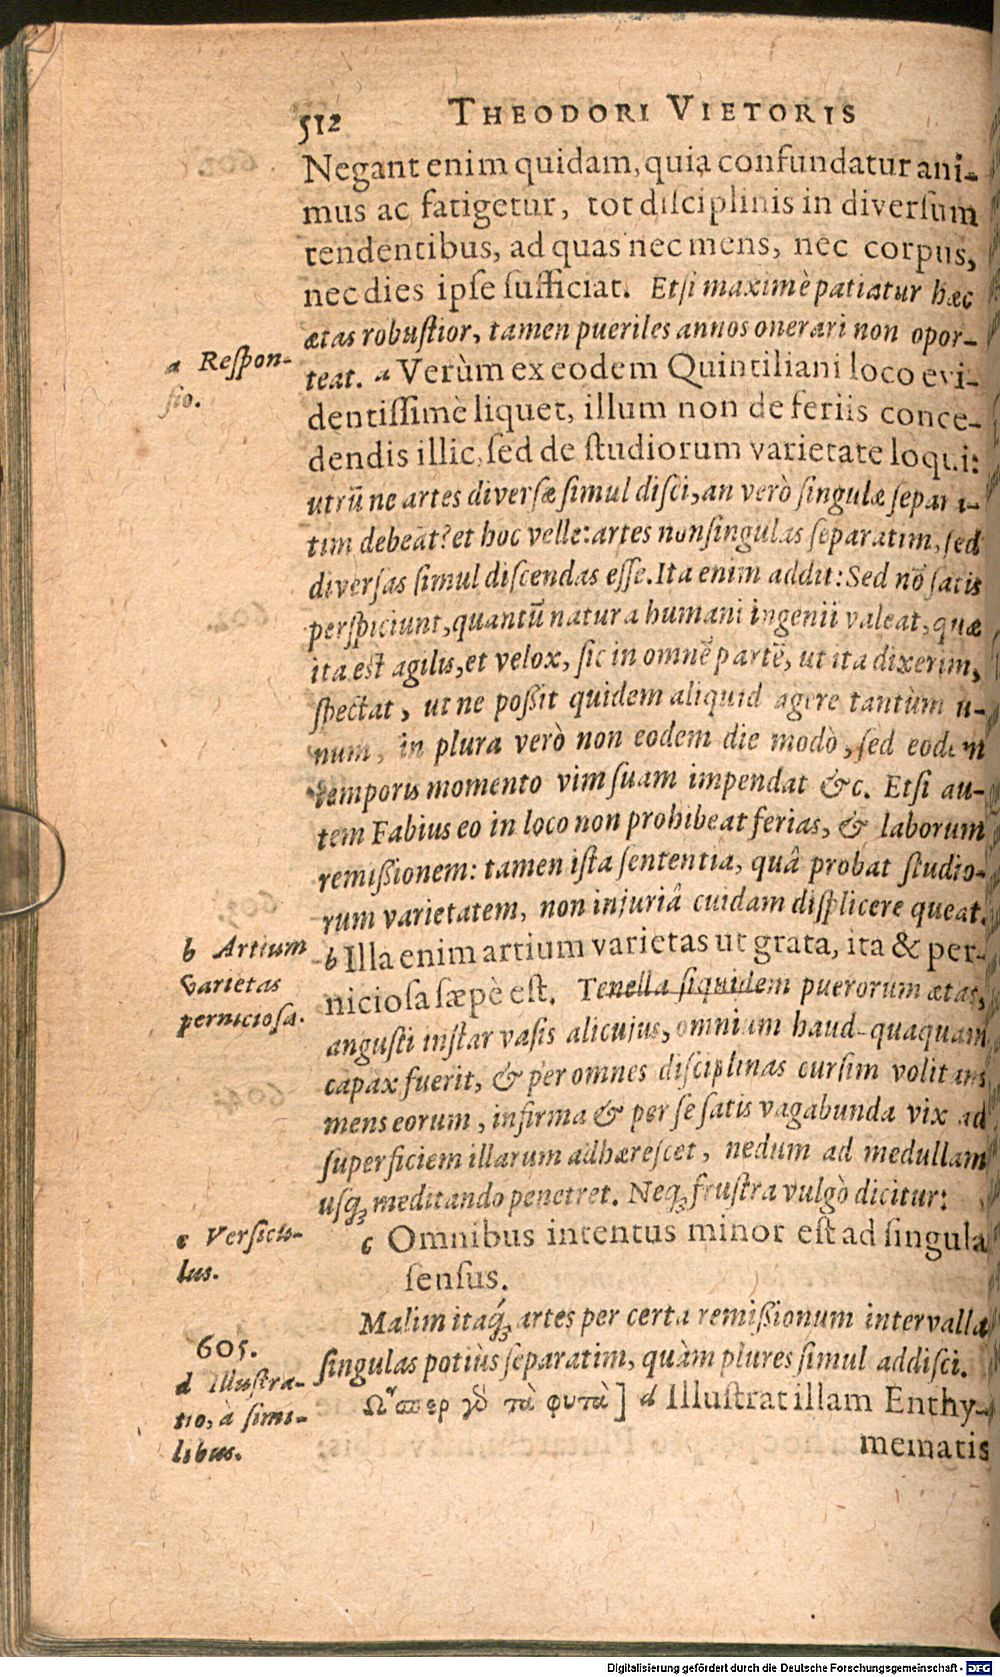 512 THEODORI VIETORIS
Negant enim quidam, quia confundatur ani-
mus ac fatigetur, tot disciplinis in diversum
tendentibus, ad quas nec mens, nec corpus,
nec dies ipse sufficiat. Etsi maximè patiatur hæc
ætas robustior, tamen pueriles annos onerari non opor-
a Respon-
sio.
teat. a Verùm ex eodem Quintiliani loco evi-
dentissimè liquet, illum non de feriis conce-
dendis illic, sed de studiorum varietate loqui:
utrũ ne artes diversæ simul disci, an verò singulæ separa-
tim debeãt? et hoc velle: artes non singulas separatim, sed
diversas simul discendas esse. Ita enim addit: Sed nõ satis
perspiciunt, quantũ natura humani ingenii valeat, quæ
ita est agilis, et velox, sic in omnẽ partẽ, ut ita dixerim,
spectat, ut ne possit quidem aliquid agere tantùm u-
num, in plura verò non eodem die modò, sed eodem
temporis momento vim suam impendat &c. Etsi au-
tem Fabius eo in loco non prohibeat ferias, & laborum
remissionem: tamen ista sententia, quâ probat studio-
rum varietatem, non injuriâ cuidam displicere queat.
b Artium
varietas
perniciosa.
b Illa enim artium varietas ut grata, ita & per-
niciosa sæpè est. Tenella siquidem puerorum ætas,
angusti instar vasis alicujus, omnium haud-quaquam
capax fuerit, & per omnes disciplinas cursim volitans
mens eorum, infirma & per se satis vagabunda vix ad
superficiem illarum adhærescet, nedum ad medullam
usq́ꝫ meditando penetret. Neqꝫ frustra vulgò dicitur:
c Versicu-
lus.
c Omnibus intentus minor est ad singula
sensus.
Malim itaq́ꝫ artes per certa remissionum intervalla
singulas potiùs separatim, quàm plures simul addisci.
605.
d Illustra-
tio, à simi-
libus.
Ὥσπερ γὸ τὰ φυτὰ] d Illustrat illam Enthy-
mematis
Digitalisierung gefördert durch die Deutsche Forschungsgemeinschaft - DFG